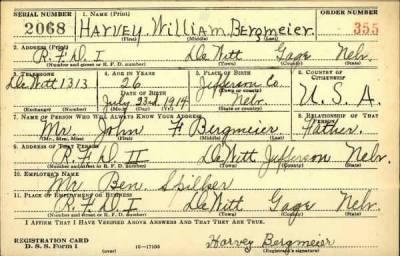 SERIAL NUMBER 1. NAME (Print) ORDER NUMBER
2068 HARVEY William Bergmeier. 355
(First) (Middle) (Last)
2. ADDRESS (Print)
R.F.D. I DeWitt Gage Nebr.
(Number and street or R. F. D. number) (Town) (County) (State)
3. TELEPHONE 4. AGE IN YEARS 5. PLACE OF BIRTH 6. COUNTRY OF CITIZENSHIP
DeWitt 1313 26 Jefferson Co.
DATE OF BIRTH (Town or county)
July 23rd 1914 Nebr. U.S.A.
(Exchange) (Number) (Mo.) (Day) (Yr.) (State or country)
7. NAME OF PERSON WHO WILL ALWAYS KNOW YOUR ADDRESS 8. RELATIONSHIP OF THAT PERSON
Mr. John F Bergmeier Father.
(Mr., Mrs., Miss) (First) (Middle) (Last)
9. ADDRESS OF THAT PERSON
R.F.D. II DeWitt Jefferson Nebr.
(Number and street or R. F. D. number) (Town) (County) (State)
10. EMPLOYER'S NAME
Mr. Ben. Spilker
11. PLACE OF EMPLOYMENT OR BUSINESS
R.F.D. I DeWitt Gage Nebr.
(Number and street or R. F. D. number) (Town) (County) (State)
I AFFIRM THAT I HAVE VERIFIED ABOVE ANSWERS AND THAT THEY ARE TRUE.
REGISTRATION CARD
D. S. S. Form 1 (over) 16—17105 Harvey Bergmeier
(Registrant's signature)